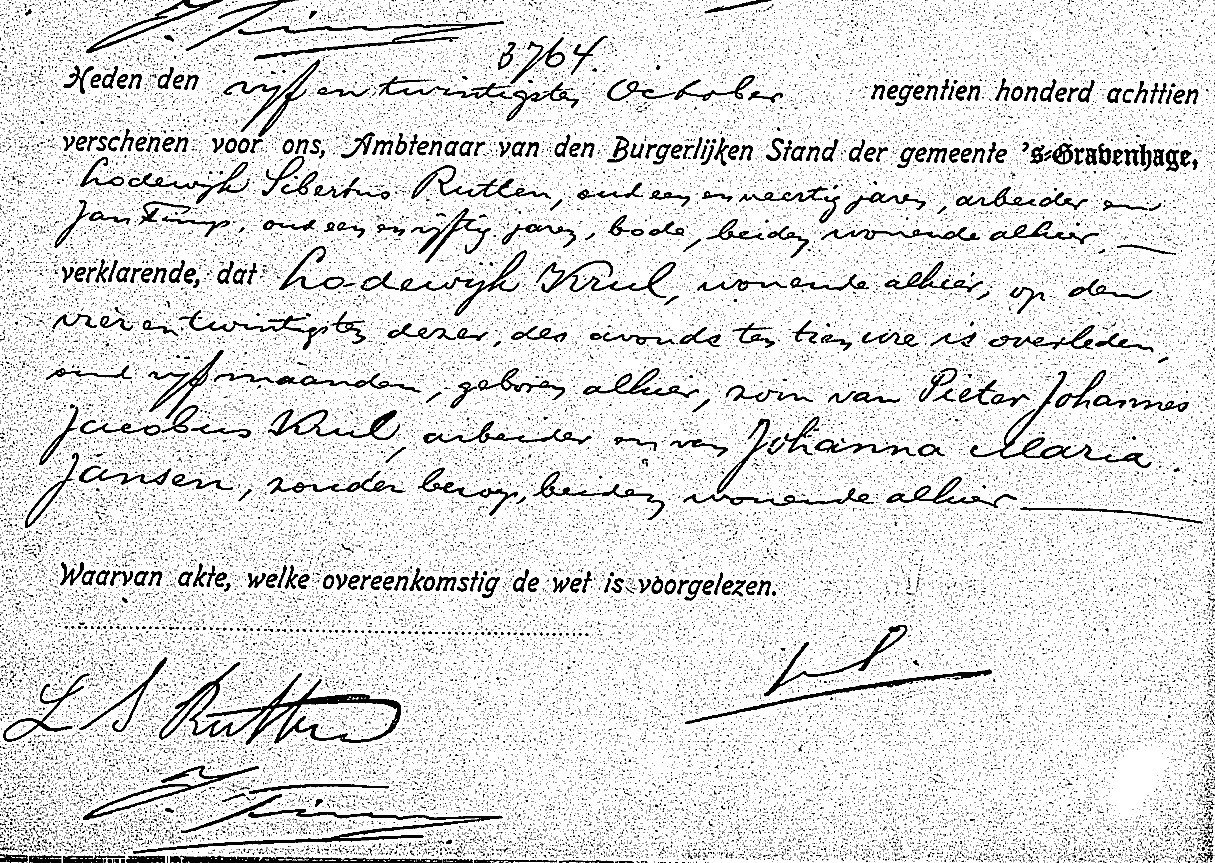 3764.
Heden den vijf en twintigsten October negentien honderd achttien
verschenen voor ons, Ambtenaar van den Burgerlijken Stand der gemeente 's-Gravenhage,
Lodewijk Sibertus Rutten, oud een en veertig jaren, arbeider en
Jan Timp, oud een en vijftig jaren, bode, beiden wonende alhier.
verklarende, dat Lodewijk Krul, wonende alhier, op den
vier en twintigsten dezer, des avonds ten tien ure is overleden,
oud vijf maanden, geboren alhier, zoon van Pieter Johannes
Jacobus Krul, arbeider en van Johanna Maria
Jansen, zonder beroep, beiden wonende alhier
Waarvan akte, welke overeenkomstig de wet is voorgelezen.
L S Rutten